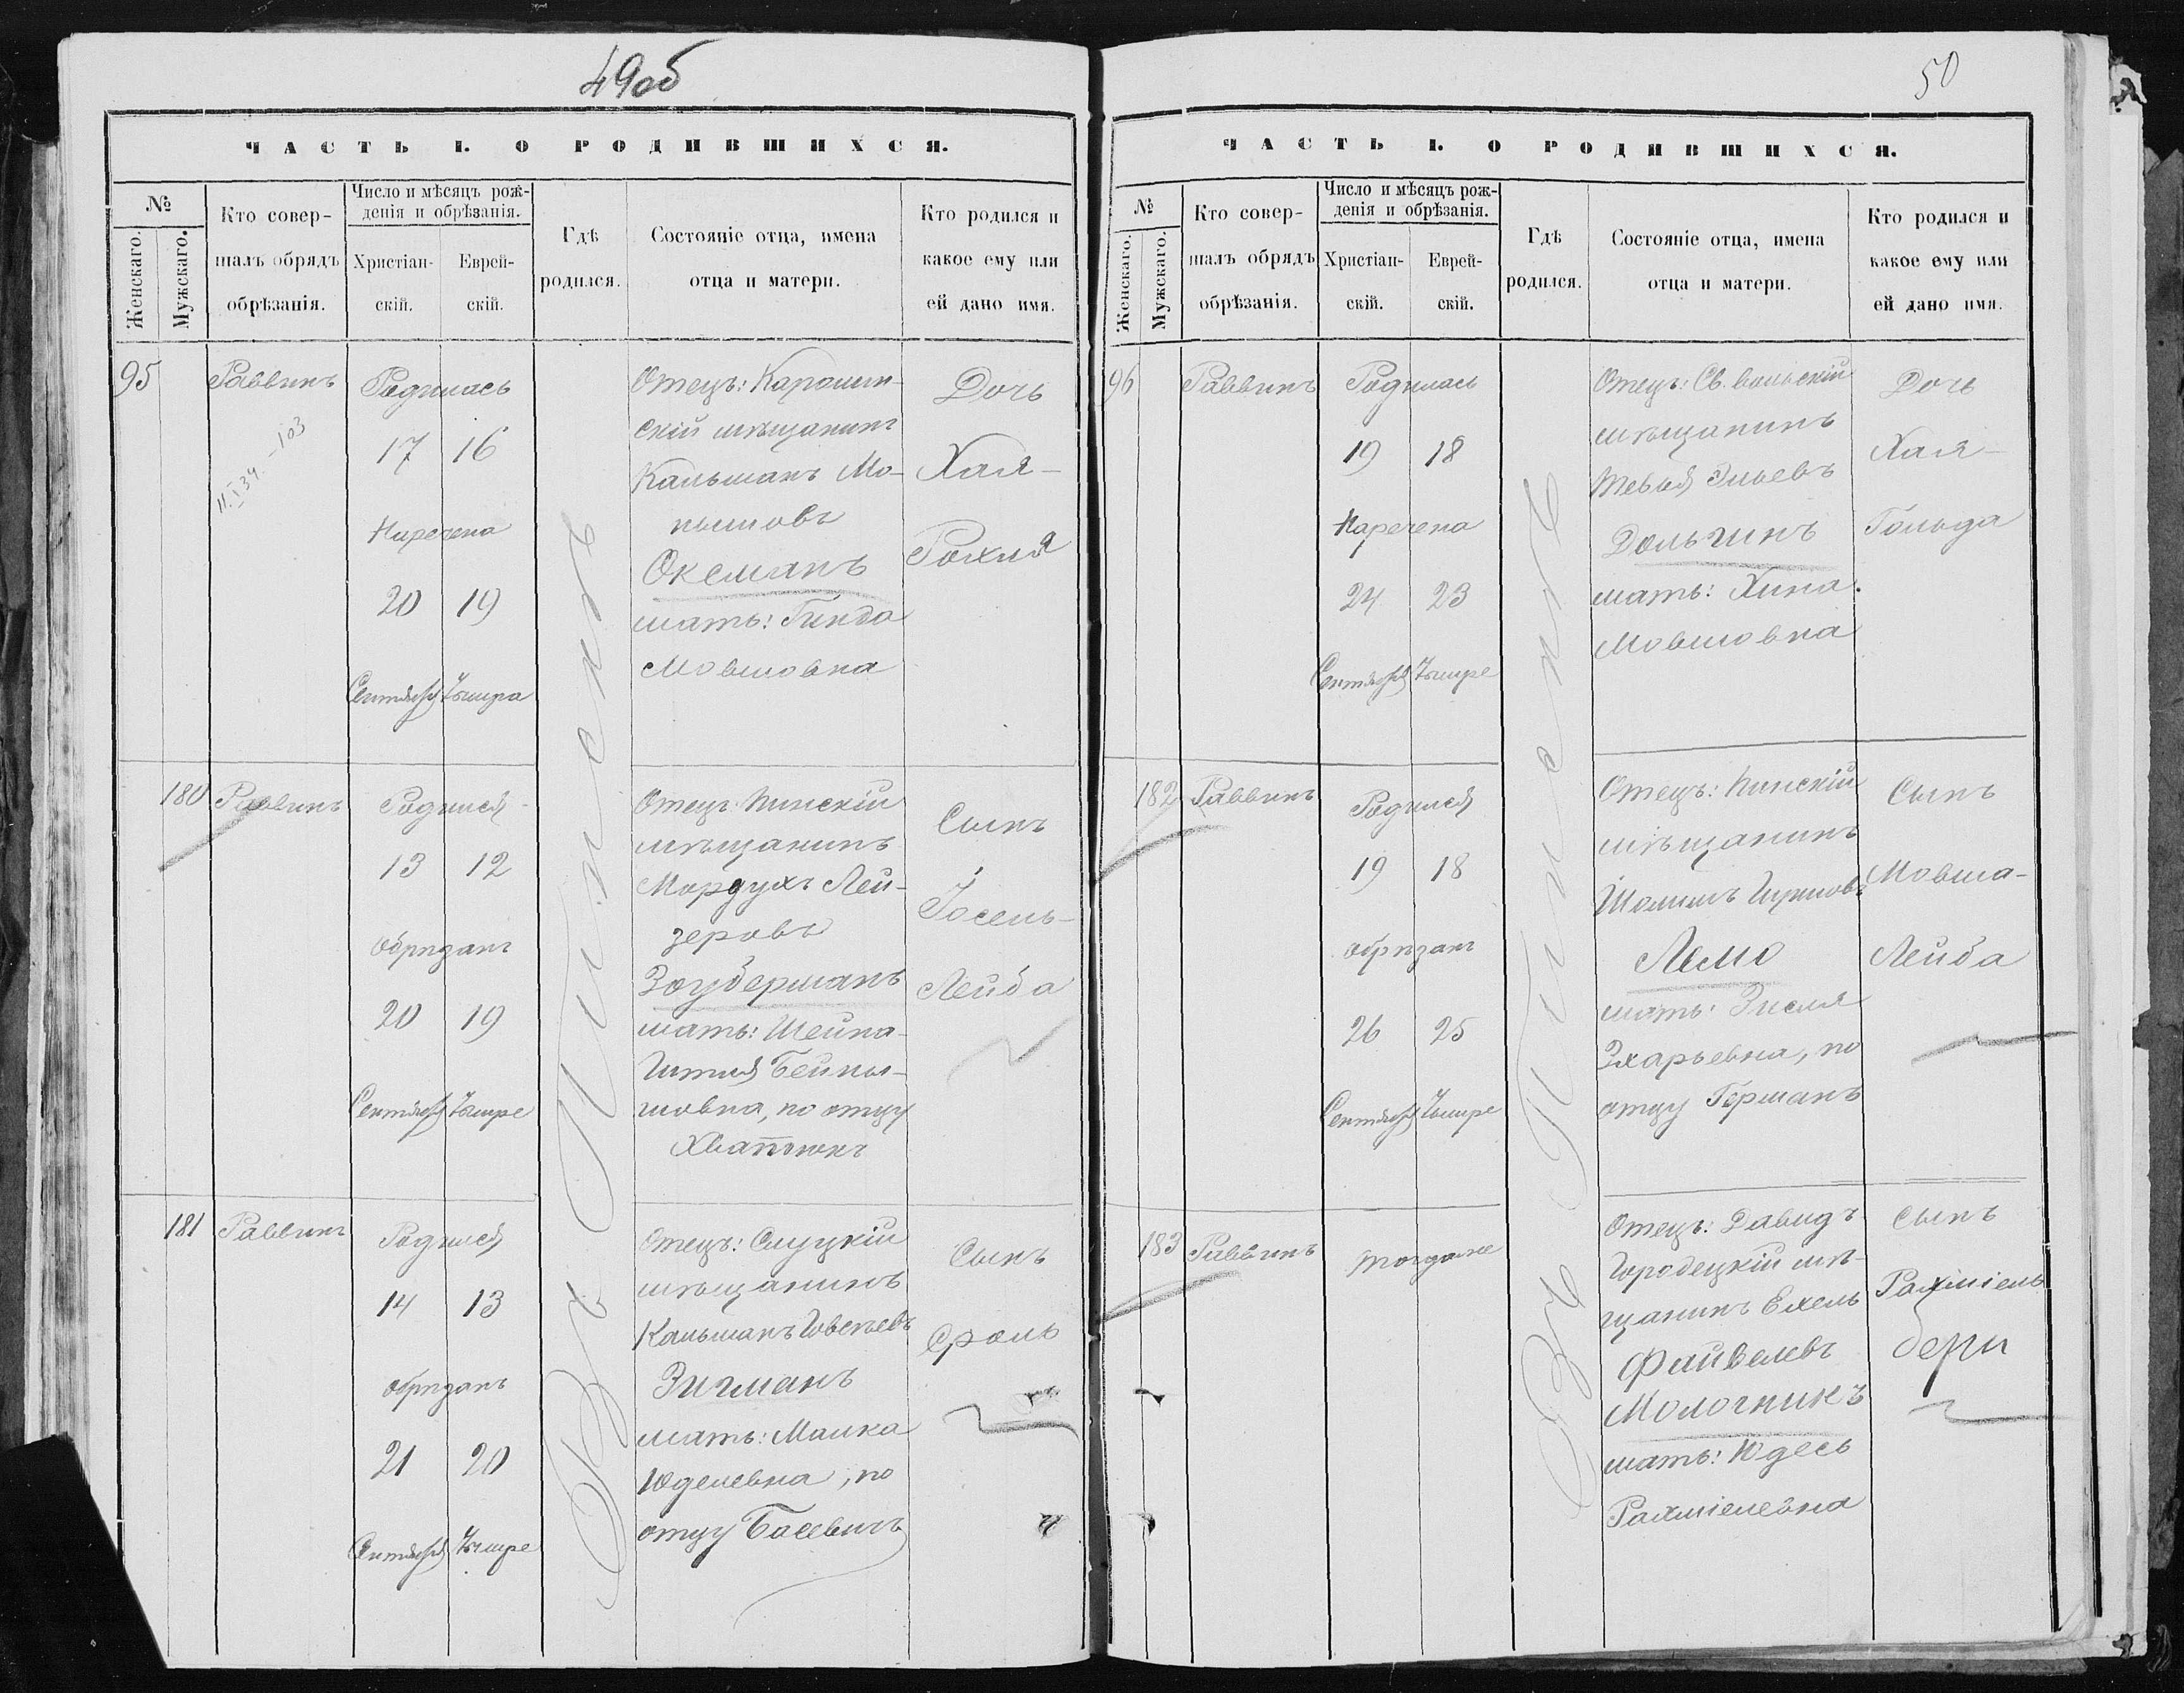 49об
ЧАСТЬ I. О РОДИВШИХСЯ.
№
Женскаго.
Мужскаго.
Кто совер-
шалъ обрядъ
обрѣзанія.
Число и мѣсяцъ рож-
денія и обрѣзанія.
Христіан-
скій.
Еврей-
скій.
Гдѣ
родился.
Состояніе отца, имена
отца и матери.
Кто родился и
какое ему или
ей дано имя.
95
Раввинъ
Родилась
17 16
Наречена
20 19
Сентября Тишра
Отецъ: Каролин-
скій мѣщанинъ
Кальманъ Мо-
Оксманъ
мать: Гинда
Мовшовна
Дочь
Хая-
Рохля
180
Раввинъ
Родился
13 12
обрѣзанъ
20 19
Сентября Тишре
Отецъ: Пинскій
мѣщанинъ
Мордухъ Лей-
зеровъ
Зауберманъ
мать: Шейна-
Итля Бейны-
шовна, по отцу
Сынъ
Іосель-
Лейба
181
Раввинъ
Родился
14 13
обрѣзанъ
21 20
Сентября Тишре
Отецъ: Слуцкій
мѣщанинъ
Кальманъ
Зигманъ
мать: Малка
Юделевна, по
отцу Басевичъ
Сынъ
Сроль
Въ Пинскѣ
50
ЧАСТЬ I. О РОДИВШИХСЯ.
№
Женскаго.
Мужскаго.
Кто совер-
шалъ обрядъ
обрѣзанія.
Число и мѣсяцъ рож-
денія и обрѣзанія.
Христіан-
скій.
Еврей-
скій.
Гдѣ
родился.
Состояніе отца, имена
отца и матери.
Кто родился и
какое ему или
ей дано имя.
96
Раввинъ
Родилась
19 18
Наречена
24 23
Сентября Тишре
Отецъ: Св. вольскій
мѣщанинъ
Тевья Эльевъ
Дольгинъ
мать: Хина
Мовшовна
Дочь
Хая-
Гольда
182
Раввинъ
Родился
19 18
обрѣзанъ
26 25
Сентября Тишре
Отецъ: Пинскій
мѣщанинъ
Шоломъ
мать: Зисля
Зхарьевна, по
отцу Германъ
Сынъ
Мовша-
Лейба
183
Раввинъ
тогда же
Отецъ: Давидъ
Городецкій мѣ-
щанинъ Ехель
Файвелевъ
Молочникъ
мать: Юдесь
Рахміелевна
Сынъ
Рахміель
берл
Въ Пинскѣ